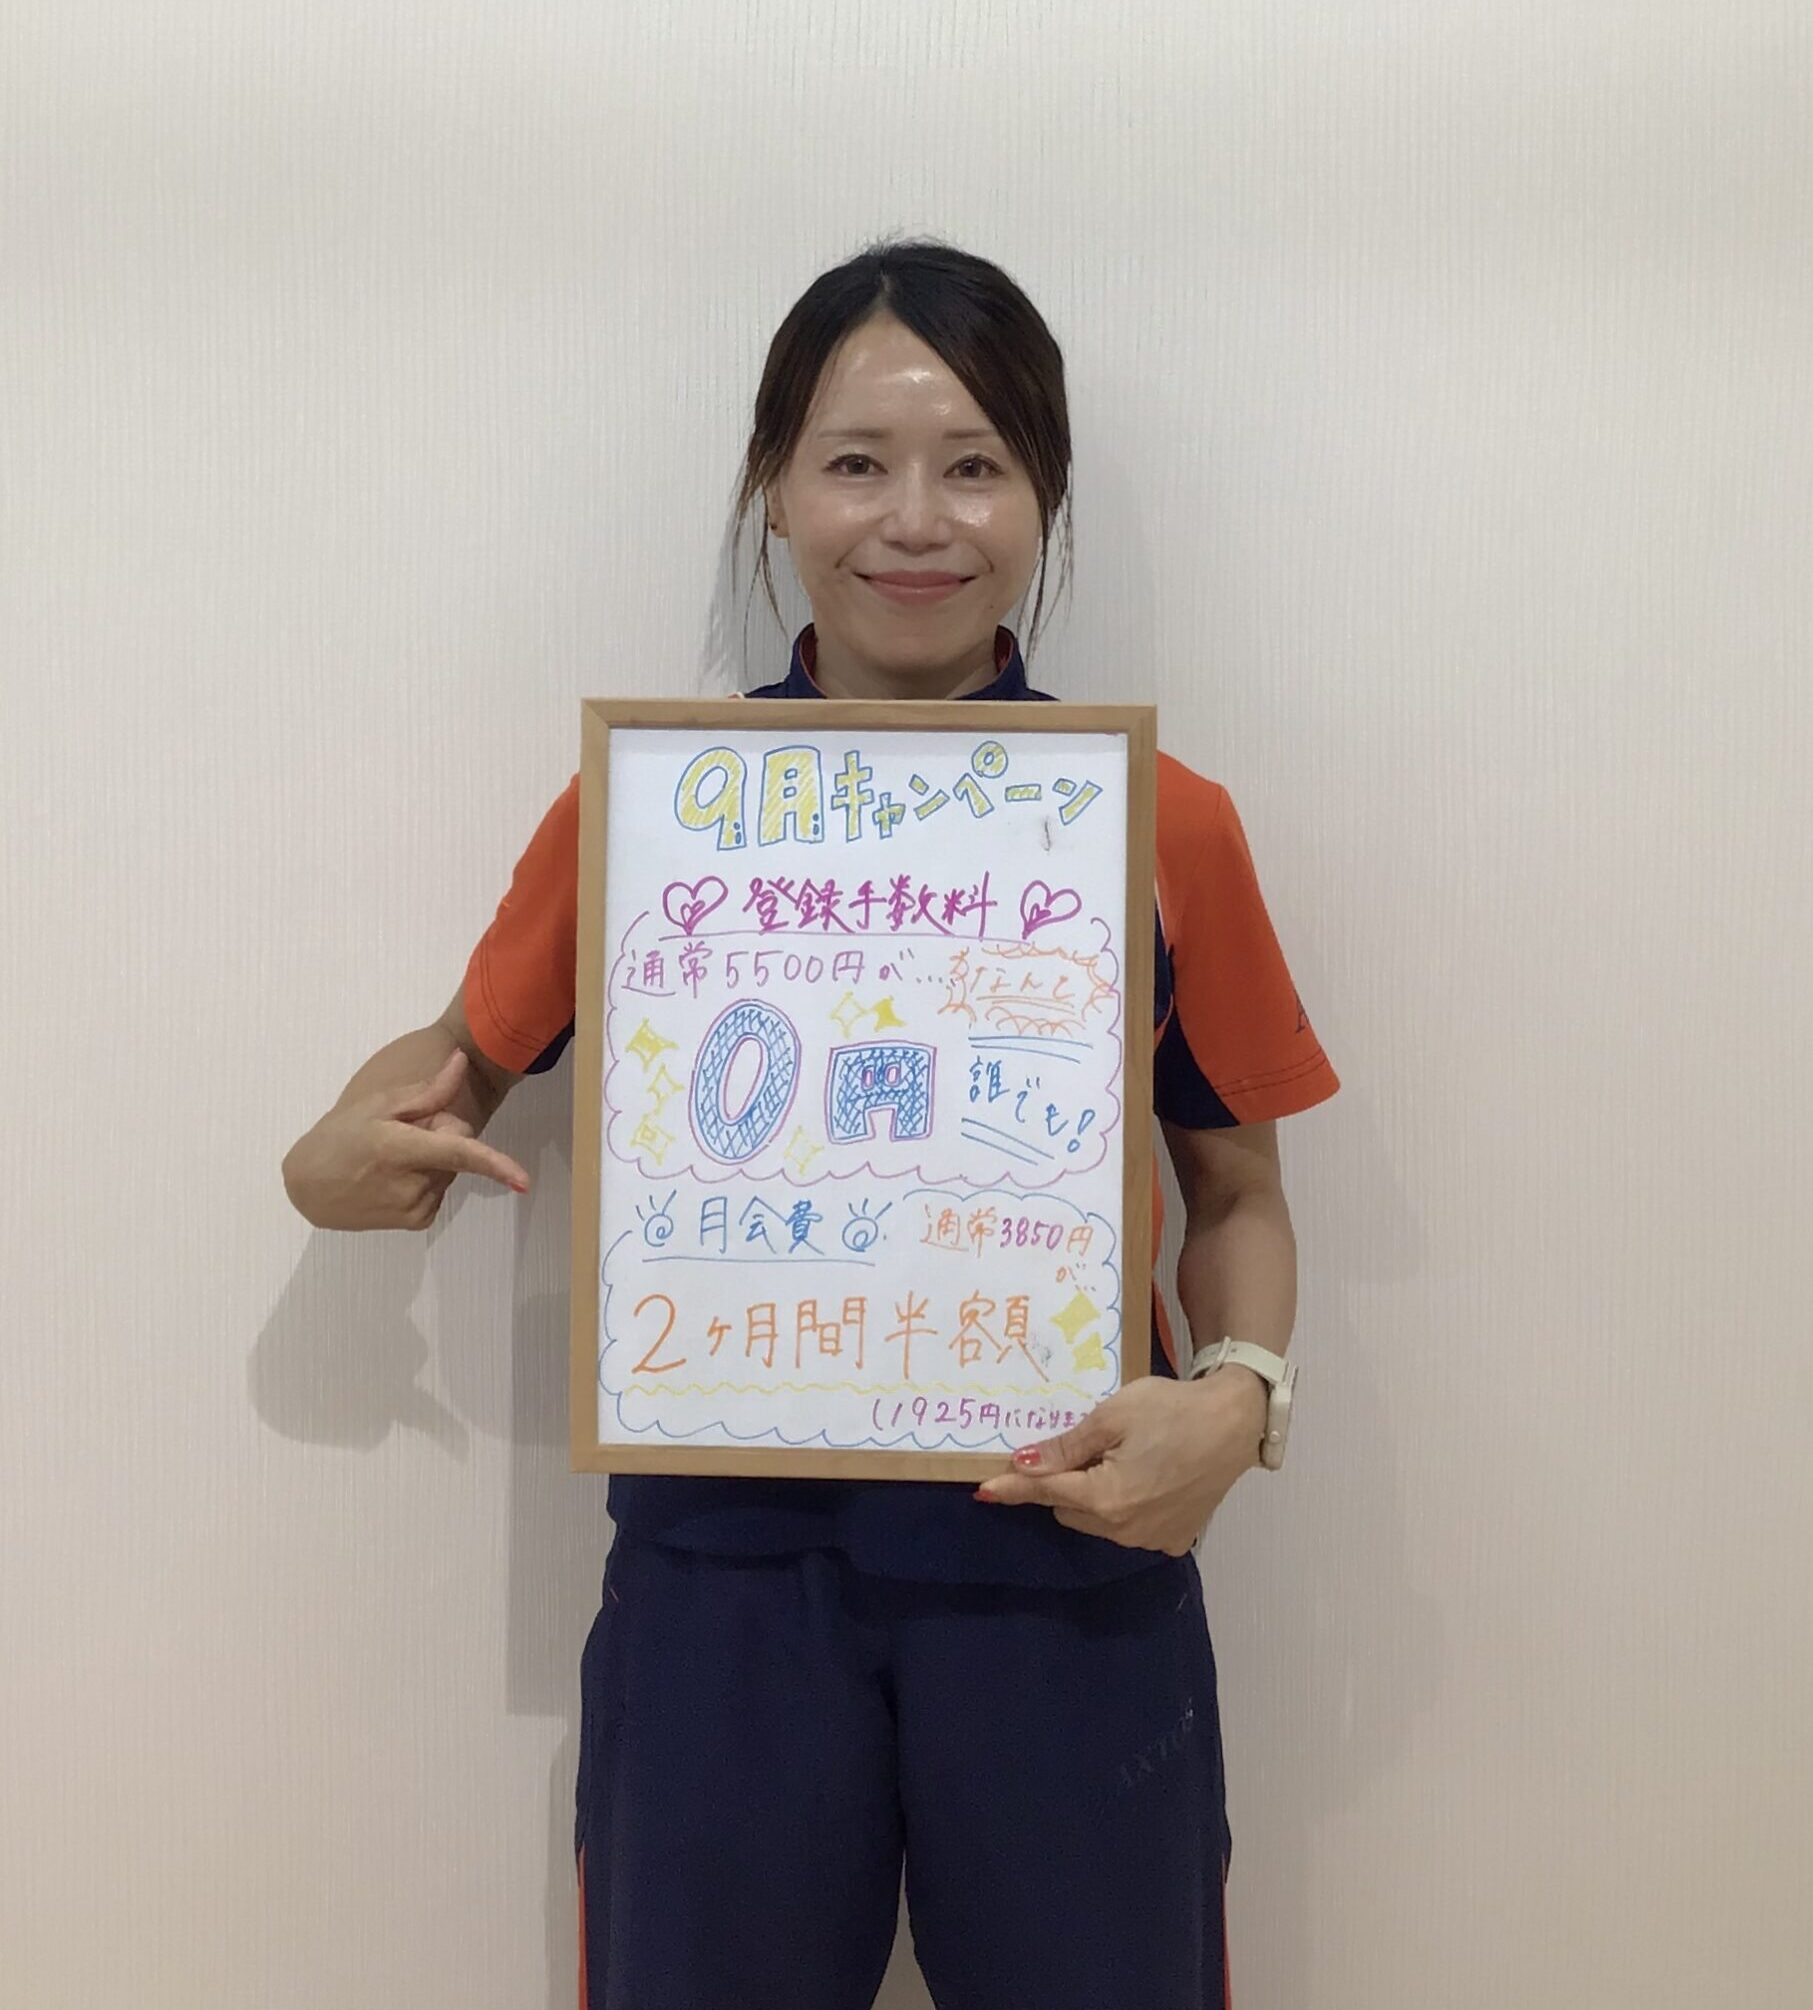 9月キャンペーン
登録手数料
通常5500円が...
なんと
0円
誰でも!
月会費
通常3850円
が...
2ヶ月間半額
(1925円になりま